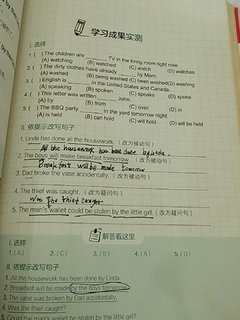 学习成果实测
I. 选择
1. ( ) The children are ______ TV in the living room right now.
(A) watching (B) watched (C) watch (D) watches
2. ( ) The dirty clothes have already ______ by Mom.
(A) washed (B) being washed (C) been washed (D) washing
3. ( ) English is ______ in the United States and Canada.
(A) speaking (B) spoken (C) speaks (D) spoke
4. ( ) This letter was written ______ John.
(A) by (B) from (C) over (D) in
5. ( ) The BBQ party ______ in the yard tomorrow night.
(A) is held (B) can hold (C) will hold (D) will be held
II. 依提示改写句子
1. Linda has done all the housework. (改为被动句)
All the housework has been done by Linda.
2. The boys will make breakfast tomorrow. (改为被动句)
Breakfast will be made tomorrow
3. Dad broke the vase accidentally. (改为被动句)
4. The thief was caught. (改为疑问句)
Was The thief caught
5. The man's wallet could be stolen by the little girl. (改为疑问句)
解答看这里
I. 选择
1. (A) 2. (C) 3. (B) 4. (A) 5. (D)
II. 依提示改写句子
1. All the housework has been done by Linda.
2. Breakfast will be made by the boys tomorrow.
3. The vase was broken by Dad accidentally.
4. Was the thief caught?
5. Could the man's wallet be stolen by the little girl?